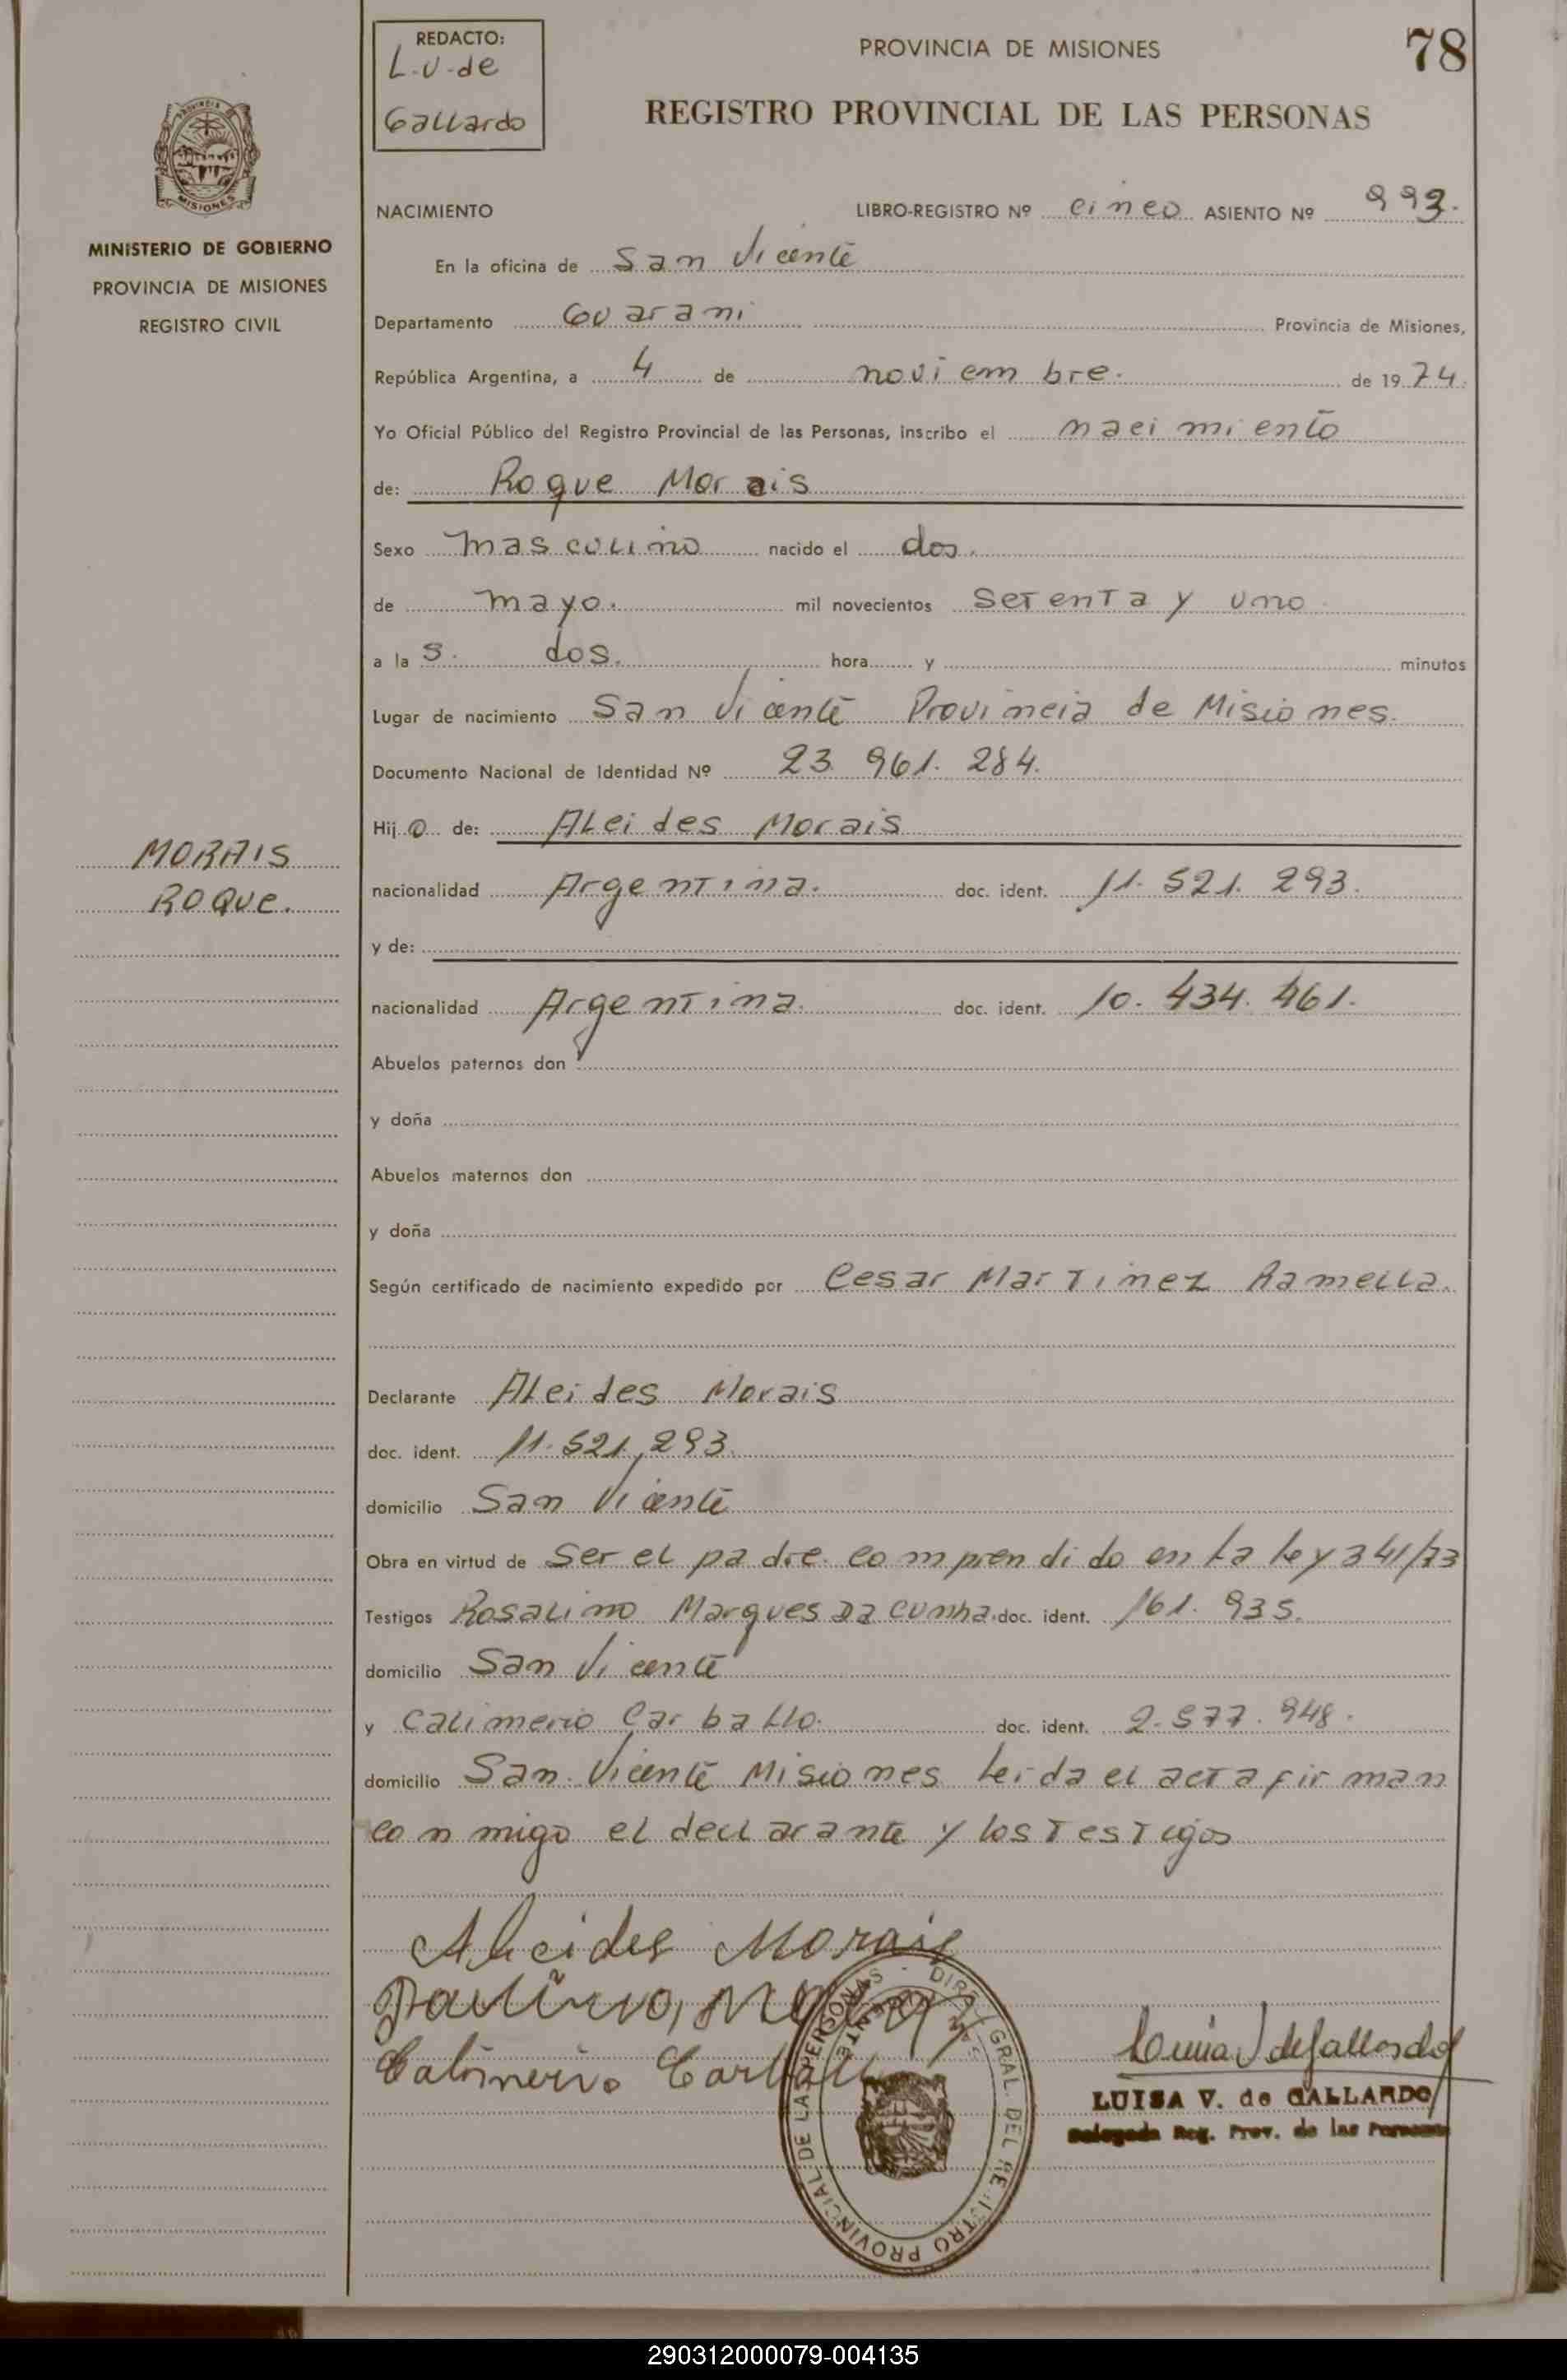 REDACTO:
L.V. de
Gallardo
PROVINCIA DE MISIONES
78
REGISTRO PROVINCIAL DE LAS PERSONAS
MISIONES
MINISTERIO DE GOBIERNO
PROVINCIA DE MISIONES
REGISTRO CIVIL
NACIMIENTO LIBRO-REGISTRO Nº cinco ASIENTO Nº 993.
En la oficina de San Vicente
Departamento Guarani Provincia de Misiones,
República Argentina, a 4 de noviembre. de 1974.
Yo Oficial Público del Registro Provincial de las Personas, inscribo el nacimiento
de: Roque Morais
Sexo masculino nacido el dos.
de mayo. mil novecientos setenta y uno
a la s. dos. hora y minutos
Lugar de nacimiento San Vicente Provincia de Misiones.
Documento Nacional de Identidad Nº 23.961.284.
Hijo de: Alcides Morais
MORAIS
ROQUE.
nacionalidad Argentina. doc. ident. 11.521.293.
y de:
nacionalidad Argentina. doc. ident. 10.434.461.
Abuelos paternos don
y doña
Abuelos maternos don
y doña
Según certificado de nacimiento expedido por Cesar Martinez Ramella.
Declarante Alcides Morais
doc. ident. 11.521,293.
domicilio San Vicente
Obra en virtud de ser el padre comprendido en la ley 341/73
Testigos Rosalino Marques Da Cunha. doc. ident. 161.935.
domicilio San Vicente
y Calimerio Carballo. doc. ident. 2.577.948.
domicilio San Vicente Misiones leida el acta firman
conmigo el declarante y los testigos
Alcides Morais
Calimerio Carballo
DIR. GRAL. DEL REGISTRO PROVINCIAL DE LAS PERSONAS
Luisa V de Gallardo
LUISA V. de GALLARDO
Delegada Reg. Prov. de las Personas
290312000079-004135